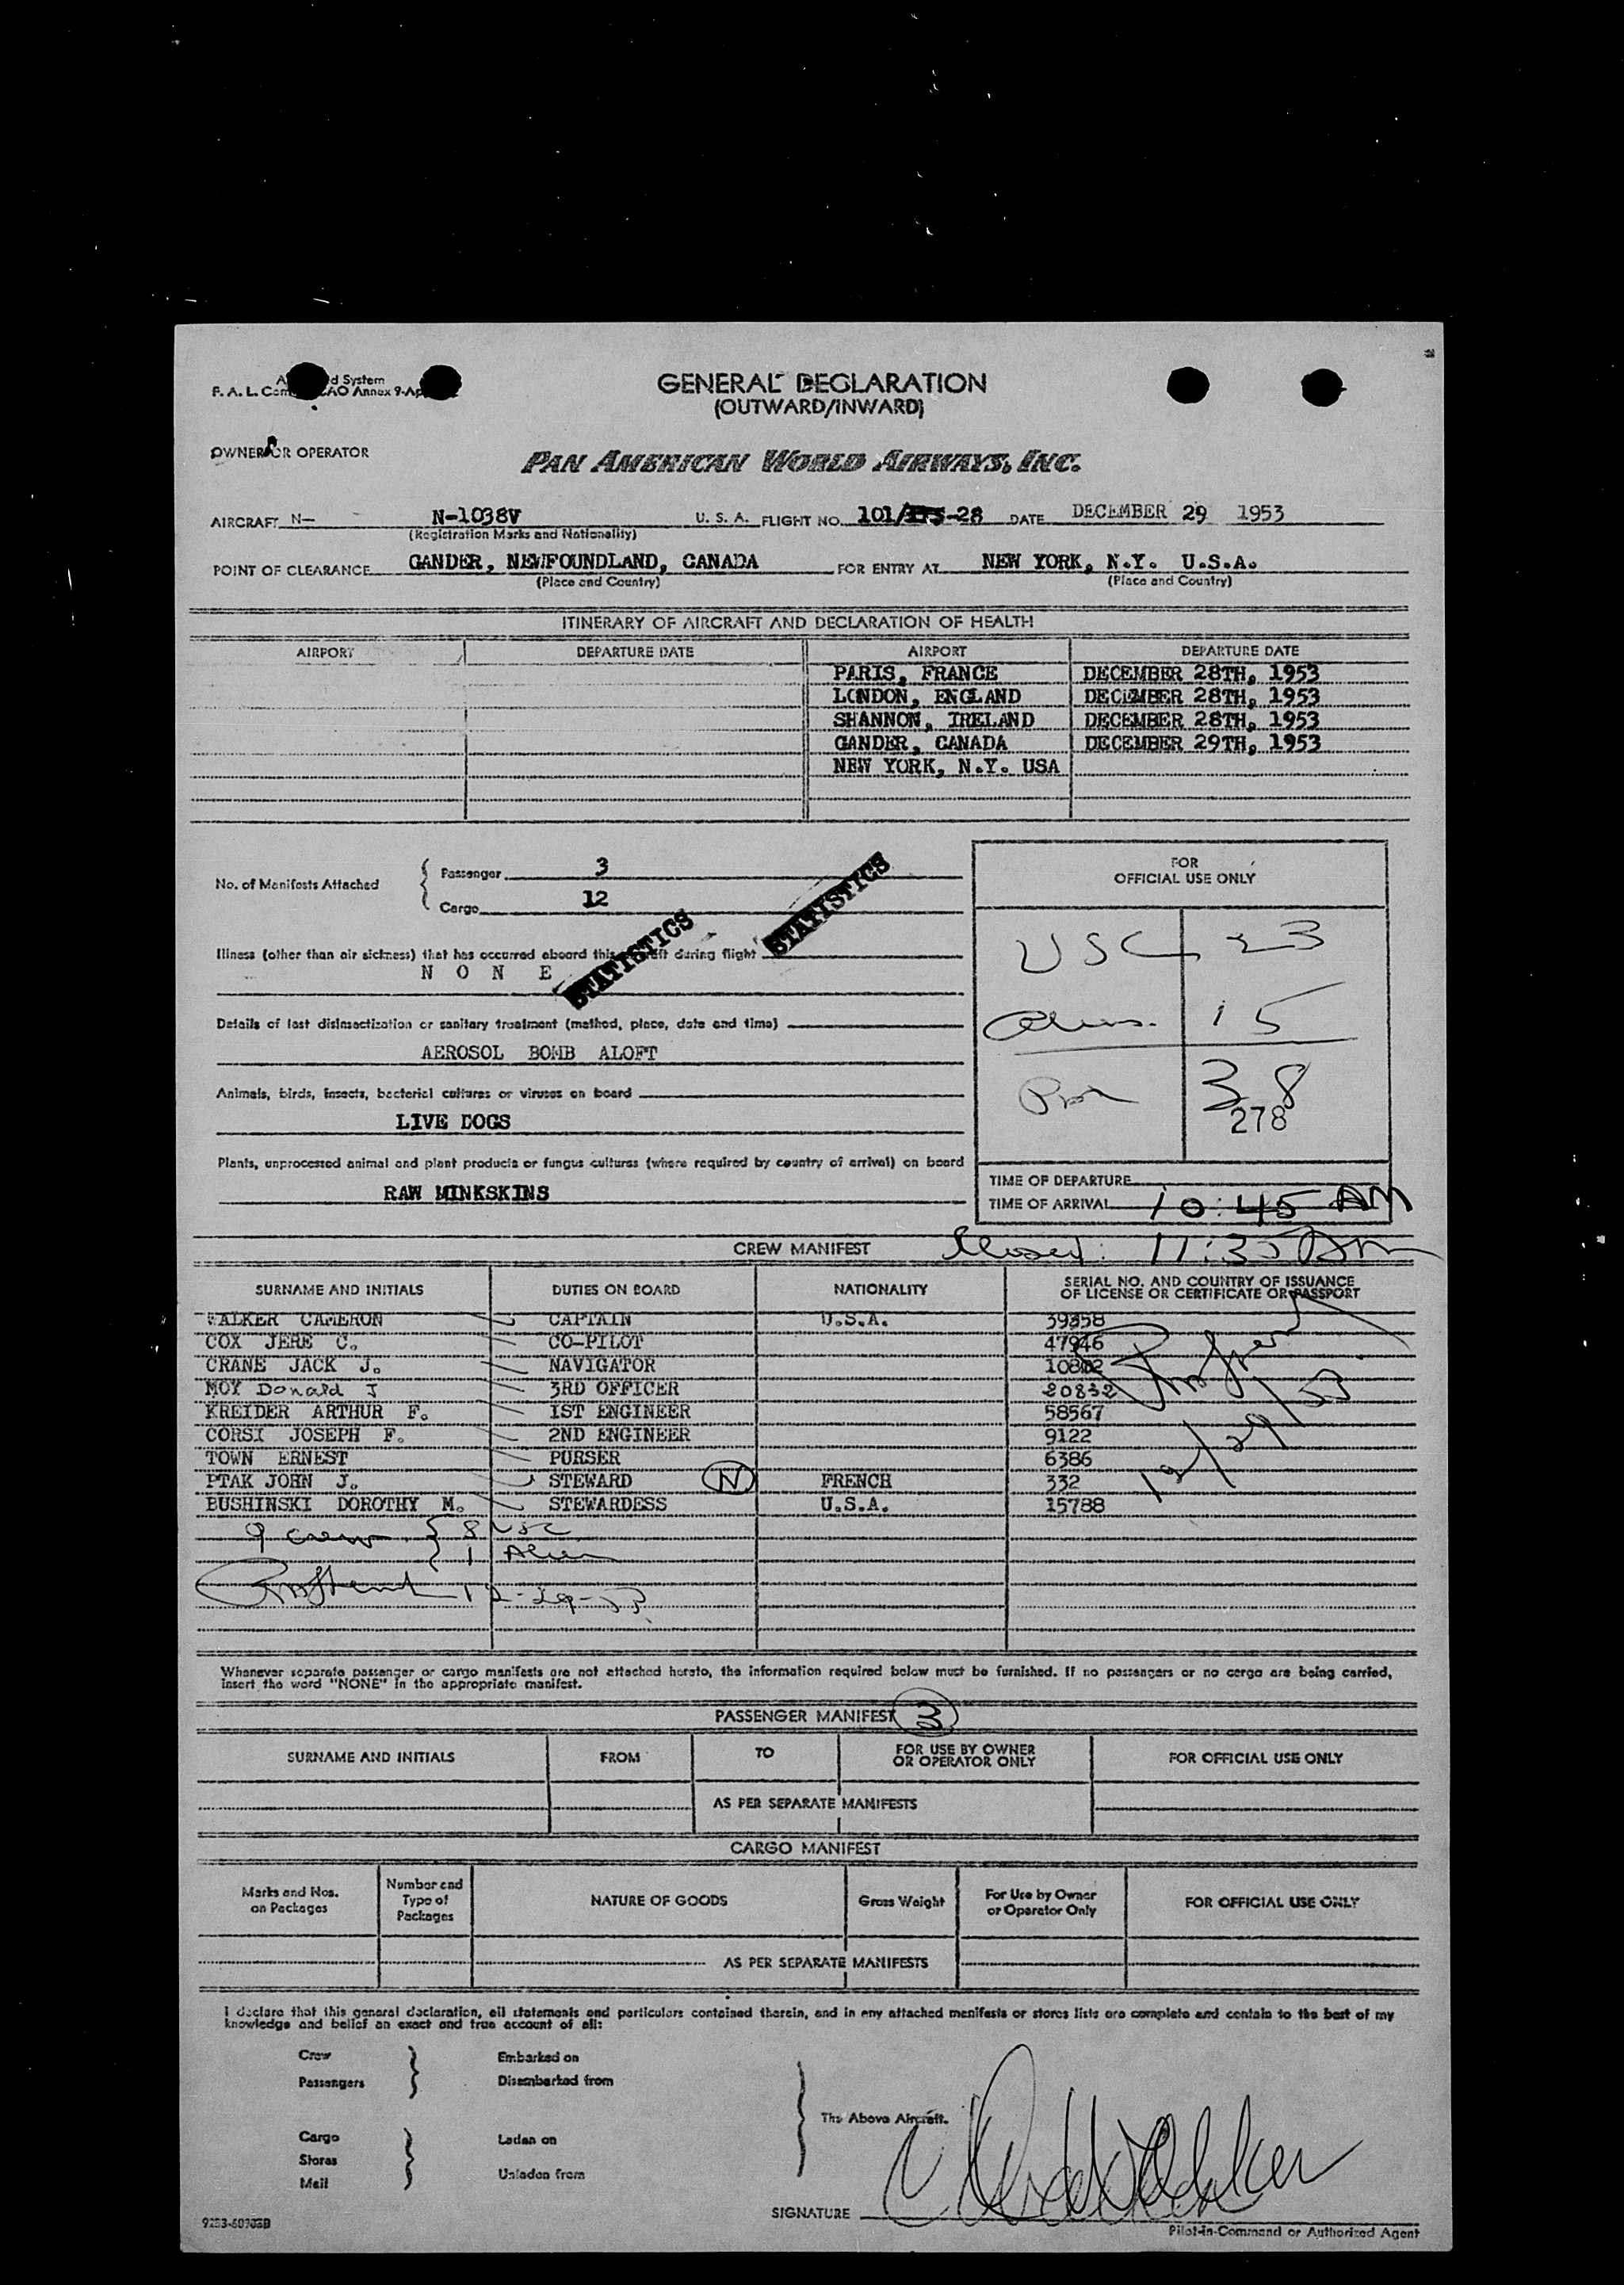 GENERAL DECLARATION
(OUTWARD/INWARD)
OWNER OR OPERATOR
PAN AMERICAN WORLD AIRWAYS, INC.
AIRCRAFT N- N-1038V U. S. A. FLIGHT NO. 101/ -28 DATE DECEMBER 29 1953
(Registration Marks and Nationality)
POINT OF CLEARANCE GANDER, NEWFOUNDLAND, CANADA FOR ENTRY AT NEW YORK, N.Y. U.S.A.
(Place and Country) (Place and Country)
ITINERARY OF AIRCRAFT AND DECLARATION OF HEALTH
AIRPORT DEPARTURE DATE AIRPORT DEPARTURE DATE
PARIS, FRANCE DECEMBER 28TH, 1953
LONDON, ENGLAND DECEMBER 28TH, 1953
SHANNON, IRELAND DECEMBER 28TH, 1953
GANDER, CANADA DECEMBER 29TH, 1953
NEW YORK, N.Y. USA
No. of Manifests Attached
Passenger 3
Cargo 12
STATISTICS
STATISTICS
Illness (other than air sickness) that has occurred aboard this aircraft during flight
N O N E
Details of last disinsectization or sanitary treatment (method, place, date and time)
AEROSOL BOMB ALOFT
Animals, birds, insects, bacterial cultures or viruses on board
LIVE DOGS
Plants, unprocessed animal and plant products or fungus cultures (where required by country of arrival) on board
RAW MINKSKINS
FOR
OFFICIAL USE ONLY
USC 23
15
38
278
TIME OF DEPARTURE
TIME OF ARRIVAL 10:45 AM
Closed: 11:35 Am
CREW MANIFEST
SURNAME AND INITIALS DUTIES ON BOARD NATIONALITY SERIAL NO. AND COUNTRY OF ISSUANCE
OF LICENSE OR CERTIFICATE OR PASSPORT
WALKER CAMERON CAPTAIN U.S.A. 39358
COX JERE C. CO-PILOT 47946
CRANE JACK J. NAVIGATOR 10802
MOY Donald J 3RD OFFICER 20832
KREIDER ARTHUR F. 1ST ENGINEER 58567
CORSI JOSEPH F. 2ND ENGINEER 9122
TOWN ERNEST PURSER 6386
PTAK JOHN J. STEWARD N FRENCH 332
BUSHINSKI DOROTHY M. STEWARDESS U.S.A. 15788
12/29/53
9 crew { 8 USC
1 Alien
12-29-53
Whenever separate passenger or cargo manifests are not attached hereto, the information required below must be furnished. If no passengers or no cargo are being carried,
insert the word "NONE" in the appropriate manifest.
PASSENGER MANIFEST 3
SURNAME AND INITIALS FROM TO FOR USE BY OWNER OR OPERATOR ONLY FOR OFFICIAL USE ONLY
AS PER SEPARATE MANIFESTS
CARGO MANIFEST
Marks and Nos. on Packages Number and Type of Packages NATURE OF GOODS Gross Weight For Use by Owner or Operator Only FOR OFFICIAL USE ONLY
AS PER SEPARATE MANIFESTS
I declare that this general declaration, all statements and particulars contained therein, and in any attached manifests or stores lists are complete and contain to the best of my
knowledge and belief an exact and true account of all:
Crew Embarked on
Passengers Disembarked from
The Above Aircraft.
Cargo Laden on
Stores
Mail Unladen from
SIGNATURE
Pilot-in-Command or Authorized Agent